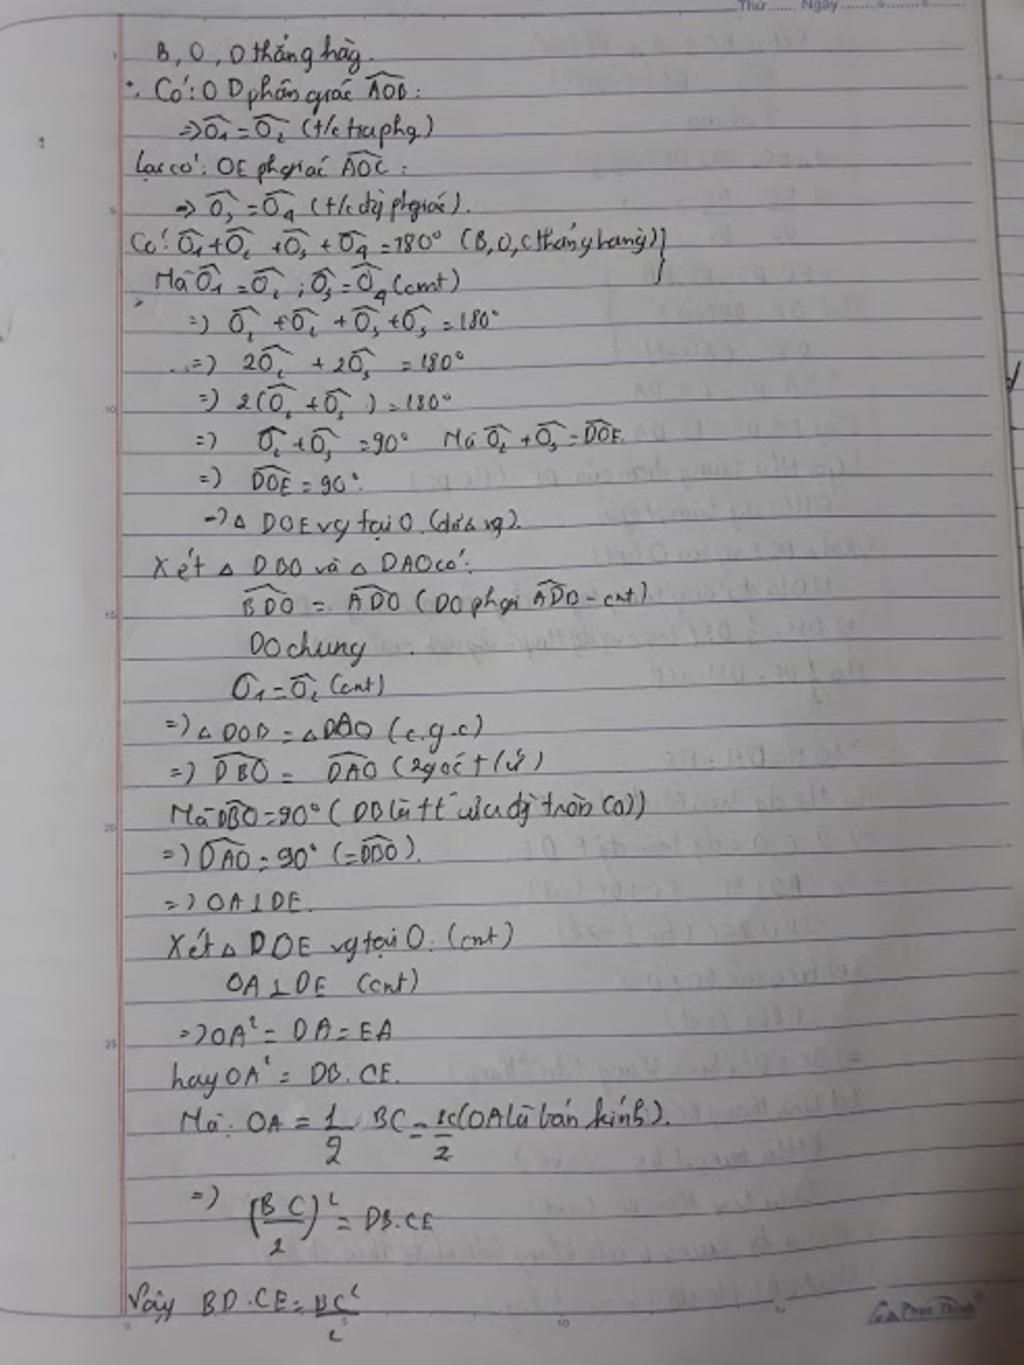 Thứ...... Ngày
B, O, O thẳng hàg.
Có: OD phân giác AOB:
=> O1 = O2 (t/c tia phg)
Lại có: OE ph giác AOC:
=> O3 = O4 (t/c đg ph giác).
Có: O1 + O2 + O3 + O4 = 180° (B, O, C thẳng hàng)
Mà O1 = O2 ; O3 = O4 (cmt)
=) O2 + O2 + O3 + O3 = 180°
=) 2O2 + 2O3 = 180°
=) 2(O2 + O3) = 180°
=) O2 + O3 = 90° Mà O2 + O3 = DOE.
=) DOE = 90°.
-> Δ DOE vg tại O.
Xét Δ DBO và Δ DAO có:
BDO = ADO (DO ph gi ADB - cnt)
DO chung
O1 = O2 (cnt)
=) Δ DOB = Δ DAO (c.g.c)
=) DBO = DAO (2 góc t/ứ)
Mà DBO = 90° (DB là tt của đg tròn (O))
=) DAO = 90° (= DBO).
=) OA ⊥ DE.
Xét Δ DOE vg tại O. (cnt)
OA ⊥ DE (cnt)
=) OA² = DA = EA
hay OA² = DB. CE.
Mà: OA = 1/2 BC = BC/2 (OA là bán kính).
=) (BC/2)² = DB. CE
Vậy BD. CE = BC²/
Phúc Thịnh